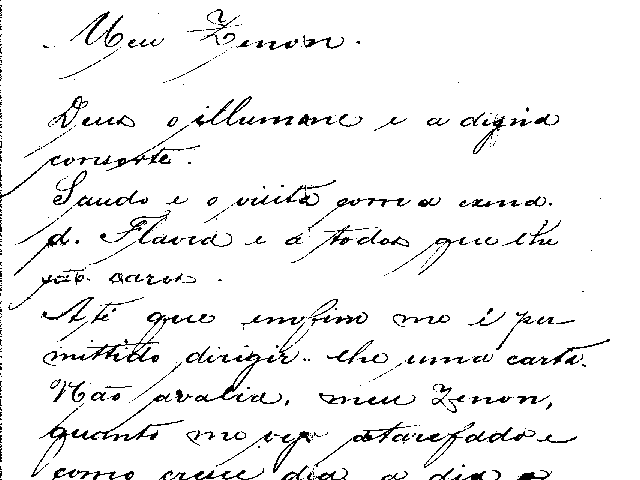 Meu Zenon.
Deus o illumine e a digna
consorte.
Saudo e o visita com a exma.
d. Flavia e a todos que lhe
são caros.
Até que emfim me é per
mittido dirigir-lhe uma carta.
Não avalia, meu Zenon,
quanto me vejo atarefado e
como cresce dia a dia o